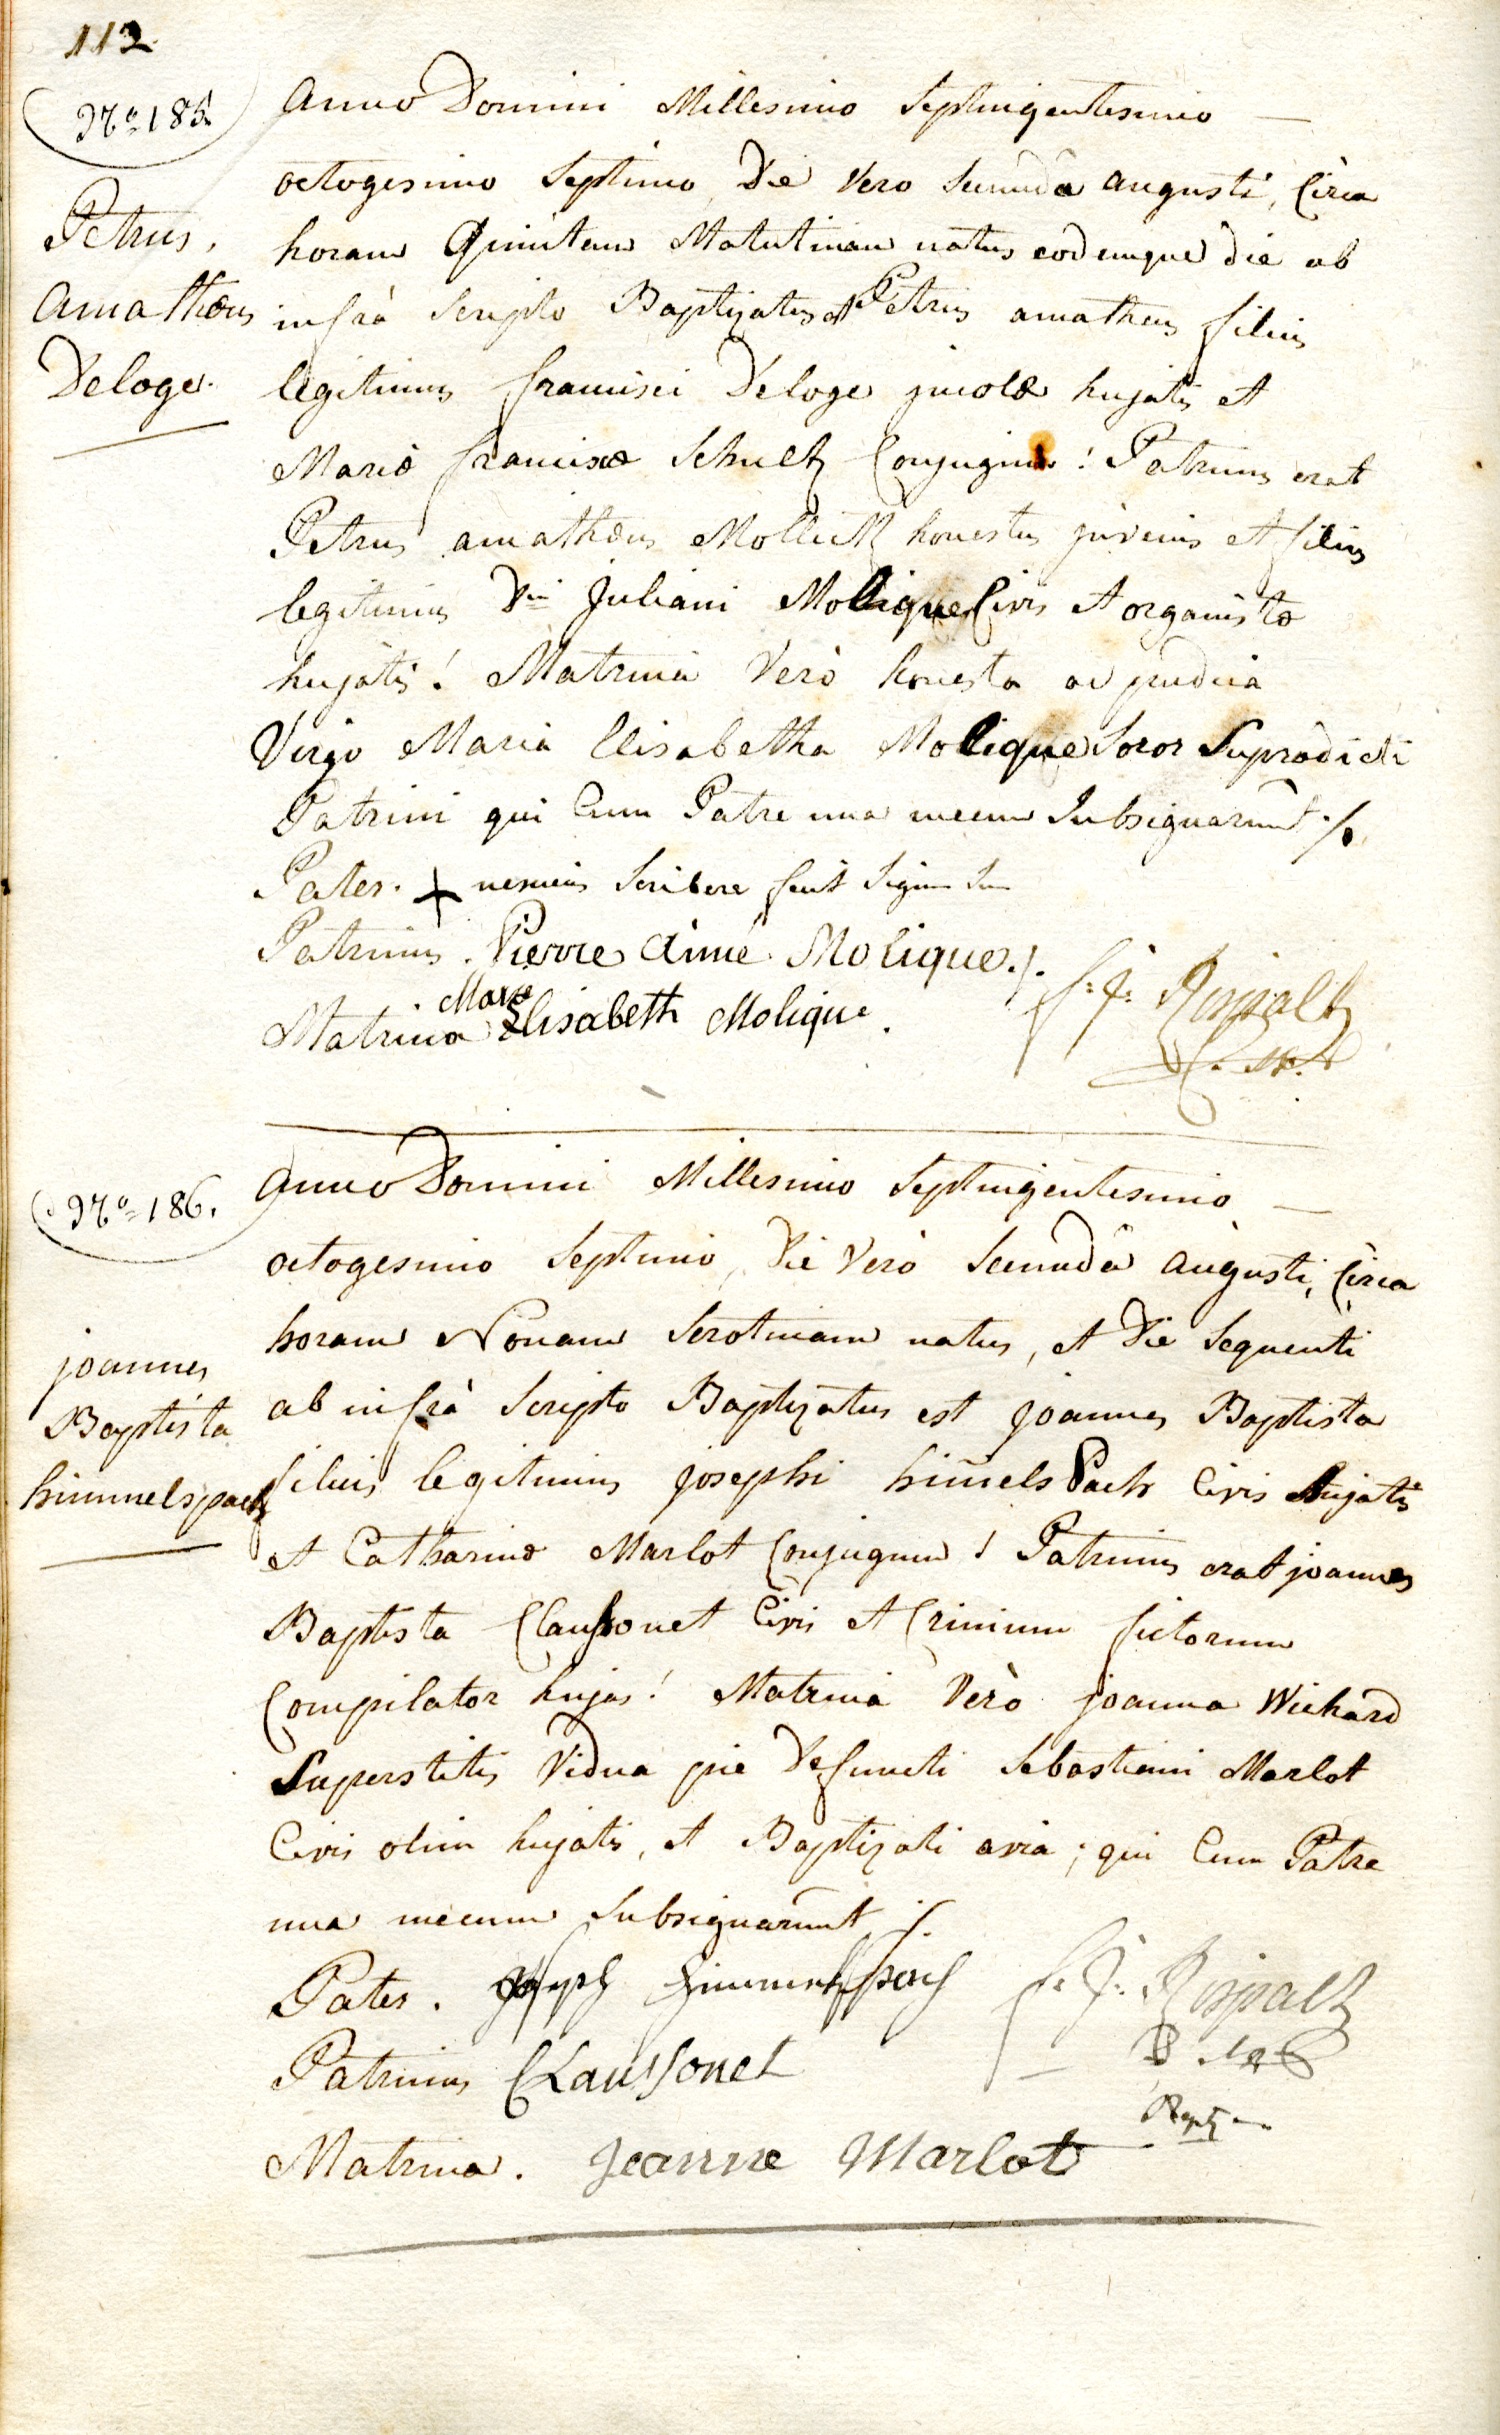 112.
Nº 185.
Petrus,
Amathæus
Deloge.
Anno Domini Millesimo Septuigentesimo —
octogesimo Septimo, Die vero Secunda augusti, Circa
horam Quintam Matutinam natus eodemque die ab
infrà Scripto Baptizatus est Petrus amatheus filius
legitimus francisci Deloge incolæ hujatis et
Mariæ franciscæ Schultz Conjugum! Patrinus erat
Petrus amathæus Mollick honestus juvenis et filius
legitimus Dni Juliani Molique Civis et organistæ
hujatis! Matrina Verò honesta ac pudica
Virgo Maria Elisabetha Molique Soror Suprædicti
Patrini qui Cum Patre una mecum Subsignarunt ./.
Pater. + nescius Scribere fecit Signum Suum
Patrinus. Pierre aimé Molique ./.
Marie
Matrina Elisabeth Molique.
f: j: Rispaltz
Nº 186.
joannes
Baptista
himmelspach
Anno Domini Millesimo Septuigentesimo —
octogesimo Septimo, Die Verò Secunda augusti, Circa
horam Nonam Serotinam natus, et Die Sequenti
ab infrà Scripto Baptizatus est joannes Baptista
filius legitimus josephi him̃elsPach Civis hujatis
et Catharinæ Marlot Conjugum! Patrinus erat joannes
Baptista Claussonet Civis et Crinium fictorum
Compilator hujas! Matrina Verò joanna Wichard
Superstitis Vidua pie Defuncti Sebastiani Marlot
Civis olim hujatis, et Baptizati avia; qui Cum Patre
una mecum Subsignarunt ./.
Pater. Joseph Himmelspach
f: j: Rispaltz
Patrinus CLaussonet
Matrina. Jeanne Marlot